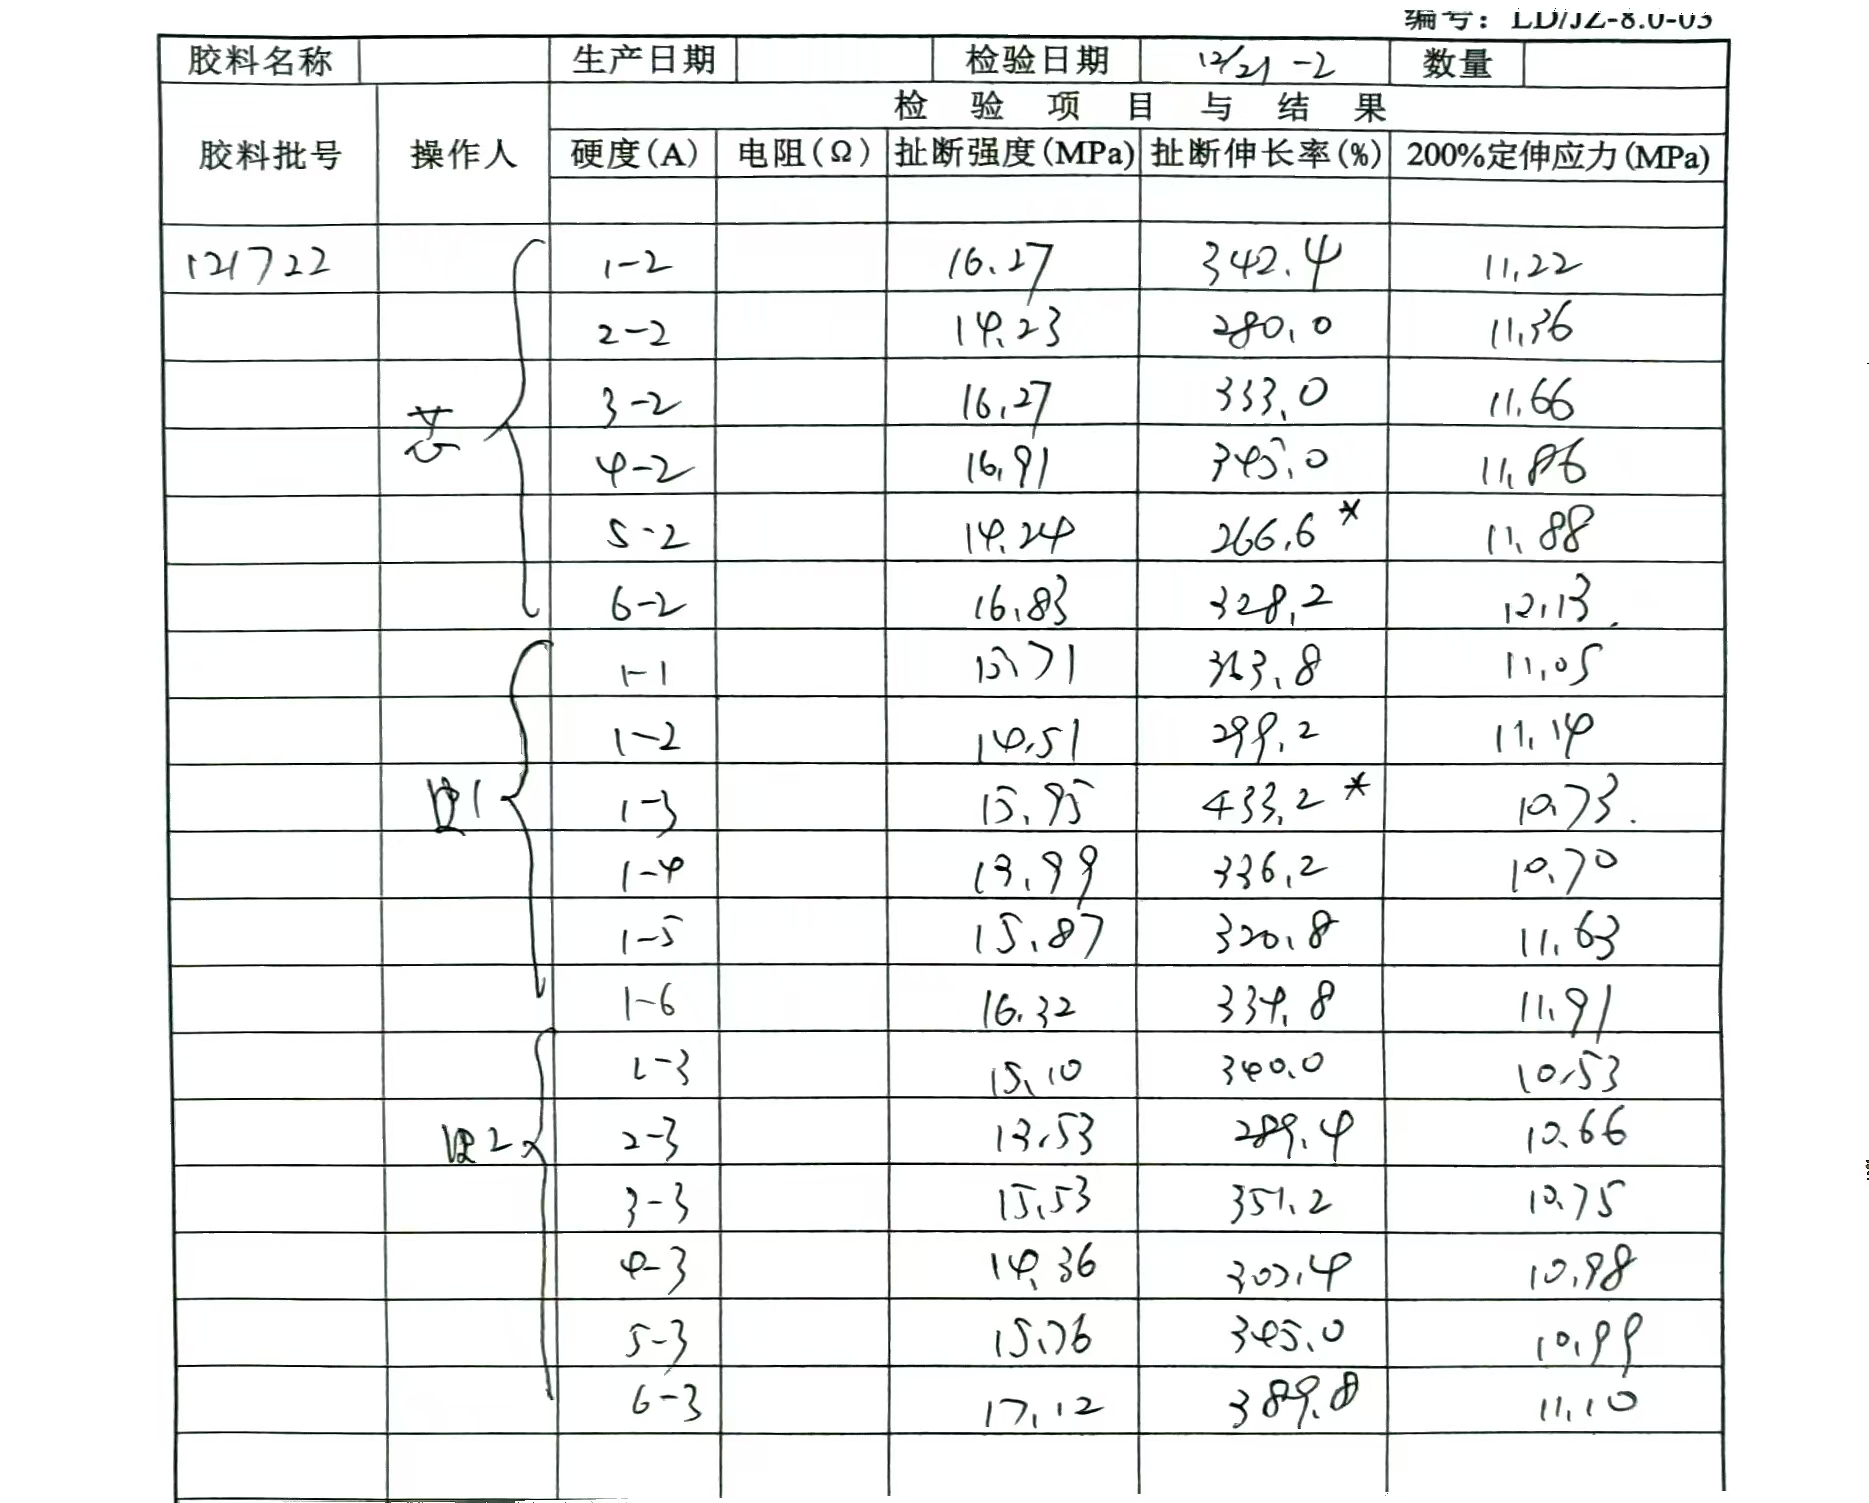 编号：LD/JZ-8.0-03
胶料名称 生产日期 检验日期 12/21-2 数量
检验项目与结果
胶料批号 操作人 硬度(A) 电阻(Ω) 扯断强度(MPa) 扯断伸长率(%) 200%定伸应力(MPa)
121722 1-2 16.27 342.4 11.22
2-2 14.23 280.0 11.36
3-2 16.27 333.0 11.66
芯 4-2 16.91 345.0 11.86
5-2 14.24 266.6* 11.88
6-2 16.83 328.2 12.13.
1-1 11.05
1-2 14.51 299.2 11.14
1-3 15.95 433.2* 10.73.
1-4 13.99 336.2 10.70
1-5 15.87 320.8 11.63
1-6 16.32 334.8 11.91
1-3 15.10 340.0 10.53
2-3 13.53 289.4 10.66
3-3 15.53 351.2 10.75
4-3 14.36 10.98
5-3 15.76 345.0 10.99
6-3 17.12 389.8 11.10